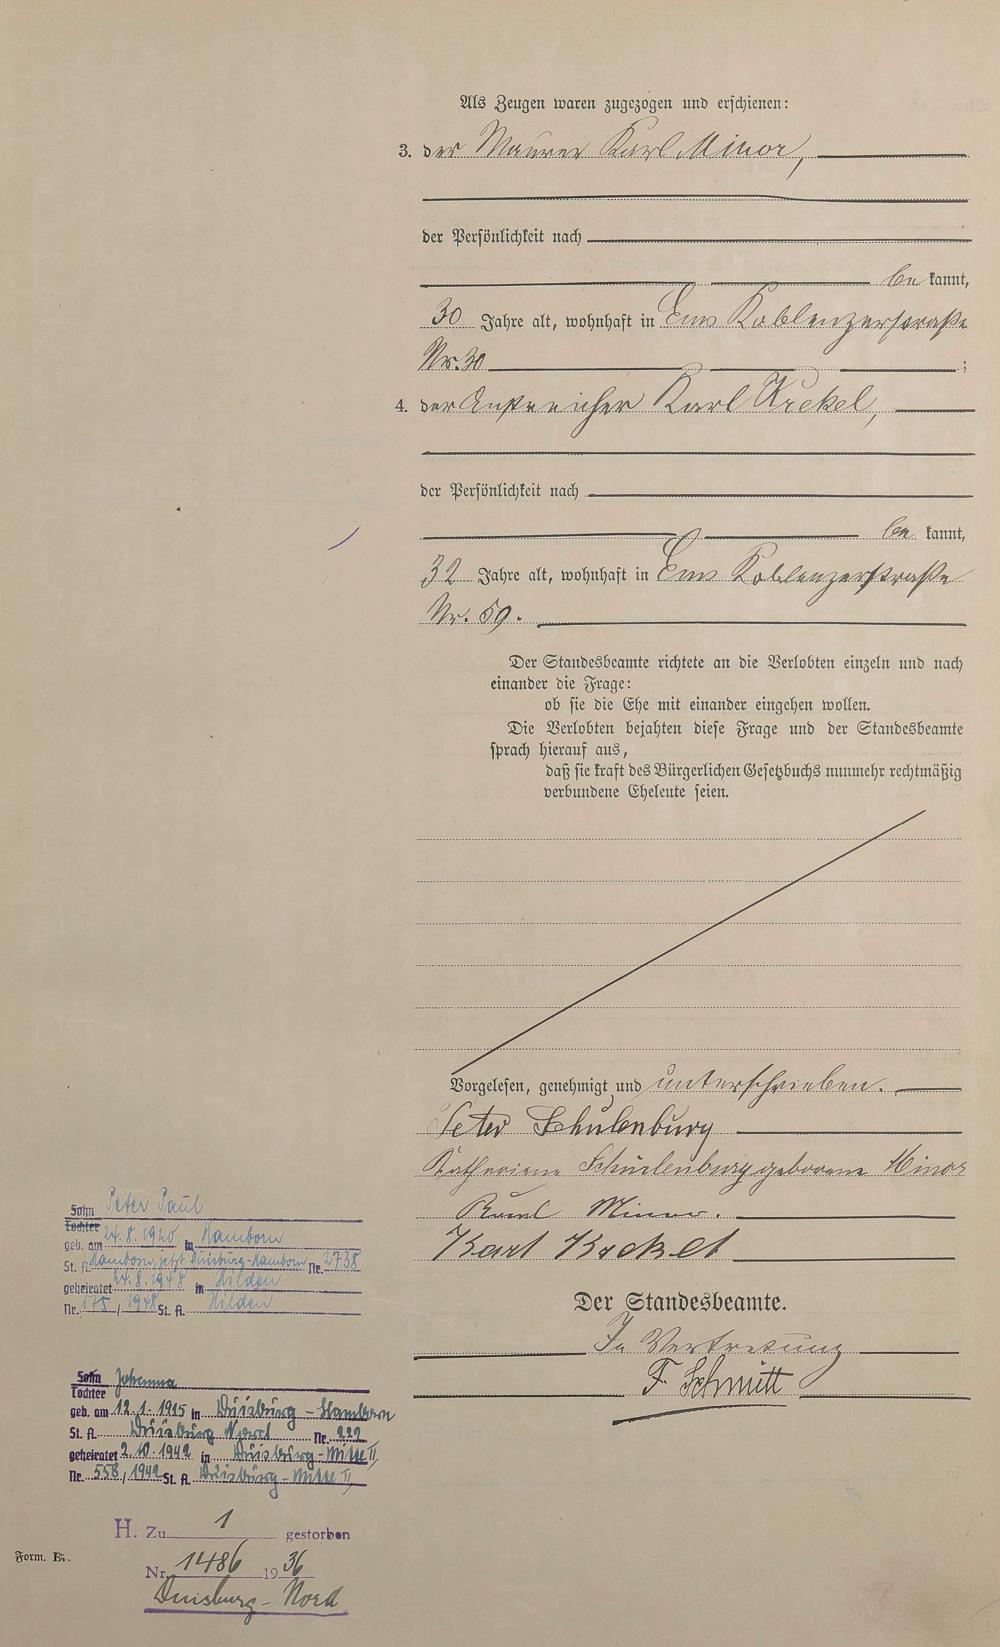 Als Zeugen waren zugezogen und erschienen:
3. der Maurer Karl Minor,
der Persönlichkeit nach
be kannt,
30 Jahre alt, wohnhaft in Ems Koblenzerstraße
Nr. 30 ;
4. der Anstreicher Karl Krekel,
der Persönlichkeit nach
be kannt,
32 Jahre alt, wohnhaft in Ems Koblenzerstraße
Nr. 59.
Der Standesbeamte richtete an die Verlobten einzeln und nach
einander die Frage:
ob sie die Ehe mit einander eingehen wollen.
Die Verlobten bejahten diese Frage und der Standesbeamte
sprach hierauf aus,
daß sie kraft des Bürgerlichen Gesetzbuchs nunmehr rechtmäßig
verbundene Eheleute seien.
Vorgelesen, genehmigt und unterschrieben.
Peter Schulenburg
Katharina Schulenburg geborene Minor
Karl Minor.
Karl Krekel
Der Standesbeamte.
In Vertretung
F. Schmitt
Sohn Peter Paul
Tochter
geb. am 24.8.1920 in Hamborn
St. A. Hamborn, jetzt Duisburg-Hamborn Nr. 2738
geheiratet 24.8.1948 in Hilden
Nr. 175 / 1948 St. A. Hilden
Sohn Johanna
Tochter
geb. am 12.1.1915 in Duisburg-Hamborn
St. A. Duisburg Nord Nr. 222
geheiratet 2.10.1942 in Duisburg-Mitte II,
Nr. 558 / 1942 St. A. Duisburg-Mitte II,
H. Zu 1 gestorben
Nr. 1486 1936
Duisburg-Nord
Form. B.